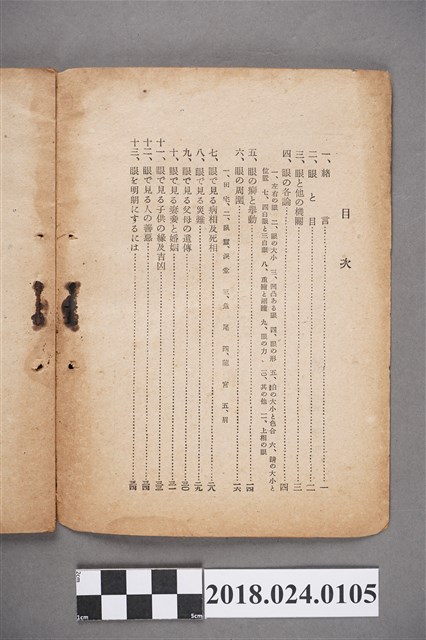 目次
一、緒言…一
二、眼と目…二
三、眼と他の機關…三
四、眼の各論…四
一、左右の眼 二、眼の大小 三、凹凸ある眼 四、眼の形 五、瞳の大小と色合 六、睛の大小と
位置 七、四白眼と三白眼 八、重瞳と兩瞳 九、眼の力 一〇、其の他 一一、上瞼の眼
五、眼の動と擧動…一四
六、眼の周圍…一六
一、田宅 二、 三、魚尾 四、 五、眉
七、眼で見る病相及死相…二八
八、眼で見る災難…二九
九、眼で見る父母の遺傳…三〇
十、眼で見る妻妾と婚姻…三一
十一、眼で見る子供の緣及吉凶…三三
十二、眼で見る人の善惡…三四
十三、眼を明朗にするには…三四
2cm
1cm
5cm
2018.024.0105